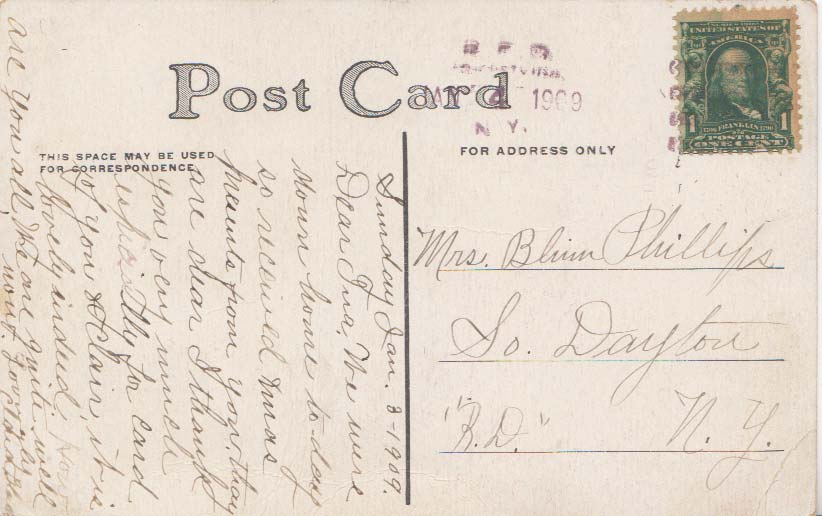 Post Card
THIS SPACE MAY BE USED
FOR CORRESPONDENCE
FOR ADDRESS ONLY
R.F.D.
1909
N. Y.
SERIES 1902
UNITED STATES OF
AMERICA
1 FRANKLIN 1
POSTAGE
ONE CENT
Mrs. Blinn Phillips
So. Dayton
"R.D." N. Y.
Sunday Jan. 3-1909.
Dear Ina, We were
down home to-day
so received Xmas
presents from you. they
are dear I thank
you very much
for card
of you & Clair it is
lovely indeed. How
are you all. We are quite well